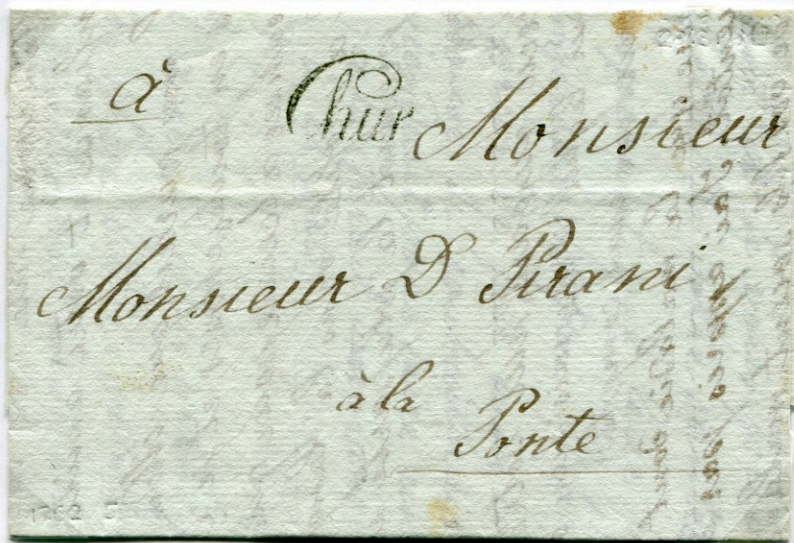 à Chur Monsieur
Monsieur D Pirani
à la
Ponte